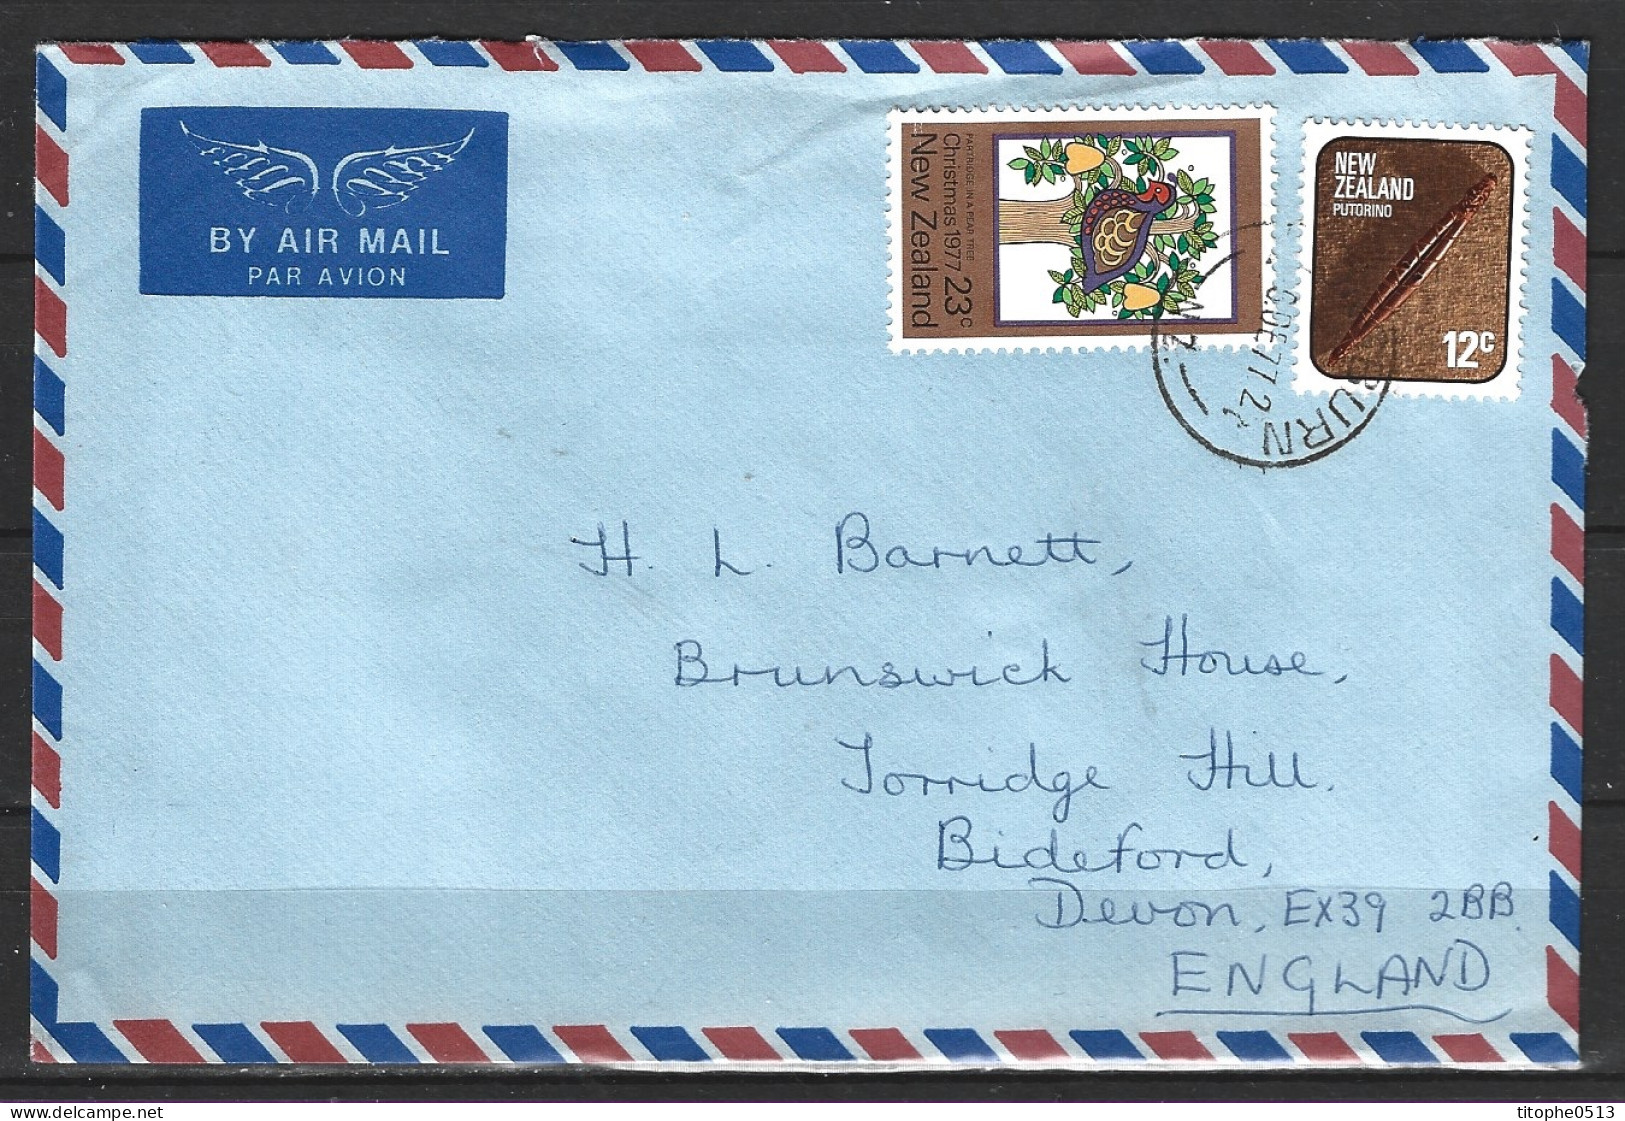 BY AIR MAIL
PAR AVION
PARTRIDGE IN A PEAR TREE
Christmas 1977 23c
New Zealand
NEW
ZEALAND
PUTORINO
12c
DE 77
N.Z.
H. L. Barnett,
Brunswick House,
Torridge Hill.
Bideford,
Devon, EX39 2BB.
ENGLAND
titophe0513